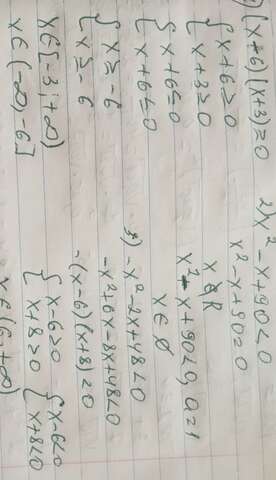 (x+6)(x+3)≥0
x+6≥0
x+3≥0
x+6≤0
x+6≤0
x≥-6
x≥-6
x∈[-3;+∞)
x∈(-∞,-6]
2) x²-x+90<0
x²-x+90=0
x∉R
x²-x+90<0, a=1
x∈∅
3) -x²-2x+48<0
-x²+6x-8x+48<0
-(x-6)(x+8)≥0
x-6>0 x-6<0
x+8>0 x+8<0
x∈(6;+∞)